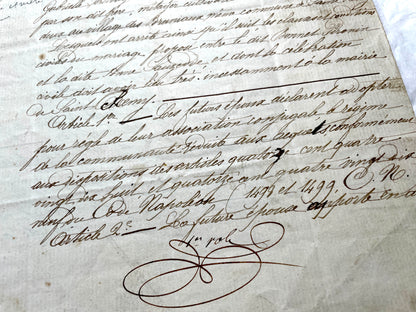 par son
aux au village des
Lesquels ont arrêté ainsi qu'il suit les clauses et conditions
civiles du mariage projeté entre le dit Bonnet Girouin
et la dite Anne et dont la célébration
civile doit avoir lieu très incessamment à la mairie
de Saint Remy.
Article 1er Les futurs époux déclarent adopter
pour règle de leur association conjugale le régime
de la communauté réduite aux acquêts conformément
aux dispositions des articles quatorze cent quatre
vingt dix huit, et quatorze cent quatre vingt dix
neuf du Code Napoléon (1498 et 1499 C. N.
Article 2e La future épouse apporte en
1er role